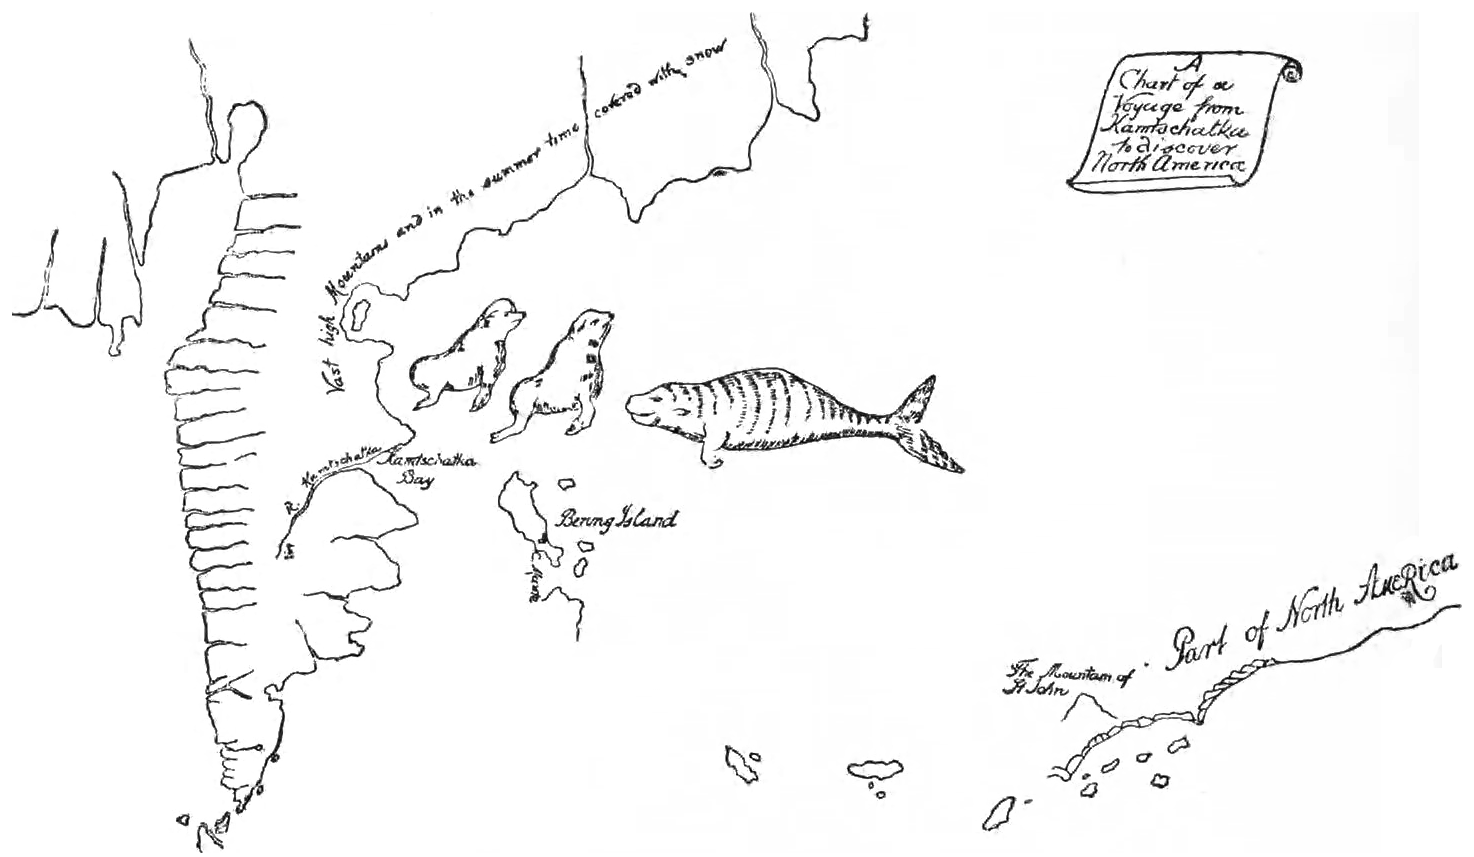 A
Chart of a
Voyage from
Kamtschatka
to discover
North America
Vast high Mountains and in the summer time covered with snow
R. Kamtschatka
Kamtschatka
Bay
Bering Island
Part of North America
The Mountain of
St John